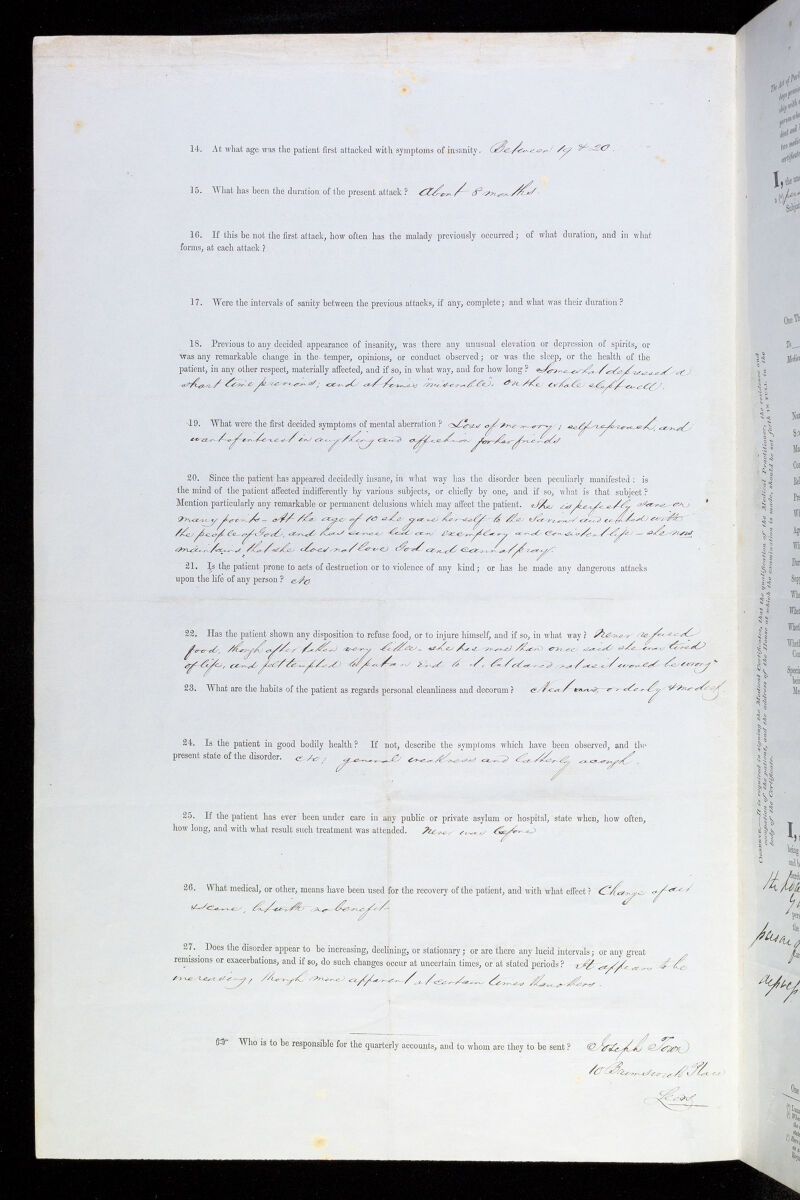 14. At what age was the patient first attacked with symptoms of insanity. Between 19 & 20
15. What has been the duration of the present attack? About 8 months.
16. If this be not the first attack, how often has the malady previously occurred; of what duration, and in what
forms, at each attack?
17. Were the intervals of sanity between the previous attacks, if any, complete; and what was their duration?
18. Previous to any decided appearance of insanity, was there any unusual elevation or depression of spirits, or
was any remarkable change in the temper, opinions, or conduct observed; or was the sleep, or the health of the
patient, in any other respect, materially affected, and if so, in what way, and for how long? Somewhat depressed a
short time previous; and at times miserable. On the whole slept well.
19. What were the first decided symptoms of mental aberration? Loss of memory; self reproach, and
want of interest in any thing and affection for her friends
20. Since the patient has appeared decidedly insane, in what way has the disorder been peculiarly manifested: is
the mind of the patient affected indifferently by various subjects, or chiefly by one, and if so, what is that subject?
Mention particularly any remarkable or permanent delusions which may affect the patient. She is perfectly sane on
many points - At the age of 10 she gave herself to the Saviour and united with
the people of God, and has since led an exemplary and consistent life - she now
maintains that she does not love God and cannot pray.
21. Is the patient prone to acts of destruction or to violence of any kind; or has he made any dangerous attacks
upon the life of any person? No
22. Has the patient shown any disposition to refuse food, or to injure himself, and if so, in what way? Never refused
food, though often taken very little. She has more than once said she was tired
of life, and attempted to put an end to it, but dared not as it would be wrong
23. What are the habits of the patient as regards personal cleanliness and decorum? Neat orderly & modest
24. Is the patient in good bodily health? If not, describe the symptoms which have been observed, and the
present state of the disorder. No; general weakness and latterly a cough.
25. If the patient has ever been under care in any public or private asylum or hospital, state when, how often,
how long, and with what result such treatment was attended. Never was before
26. What medical, or other, means have been used for the recovery of the patient, and with what effect? Change of air
& scene, but with no benefit
27. Does the disorder appear to be increasing, declining, or stationary; or are there any lucid intervals; or any great
remissions or exacerbations, and if so, do such changes occur at uncertain times, or at stated periods? It appears to be
increasing, though more apparent at certain times than others.
☞ Who is to be responsible for the quarterly accounts, and to whom are they to be sent? Joseph Town
10 Place
Leeds